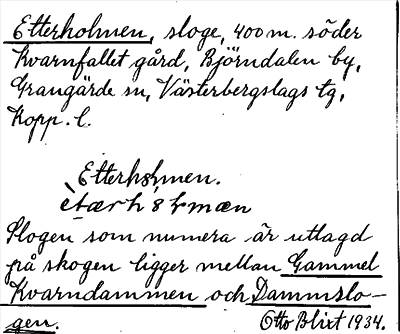 Etterholmen, sloge, 400 m. söder
Kvarnfallet gård, Björndalen by,
Grangärde sn, Västerbergslags tg,
Kopp. l.
Etterholmen.
Slogen som numera är utlagd
på skogen ligger mellan Gammel
Kvarndammen och Dammslo-
gen. Otto Blixt 1934.